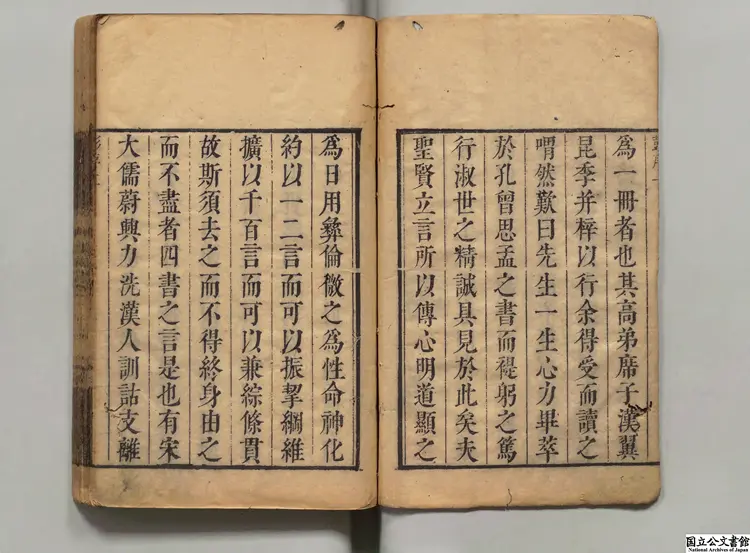 爲一冊者也其高弟席子漢翼
昆季并梓以行余得受而讀之
喟然歎曰先生一生心力畢萃
於孔曾思孟之書而褆躬之篤
行淑世之精誠具見於此矣夫
聖賢立言所以傳心明道顯之
爲日用彝倫微之爲性命神化
約以一二言而可以振挈綱維
擴以千百言而可以兼綜條貫
故斯須去之而不得終身由之
而不盡者四書之言是也有宋
大儒蔚興力洗漢人訓詁支離
国立公文書館
National Archives of Japan